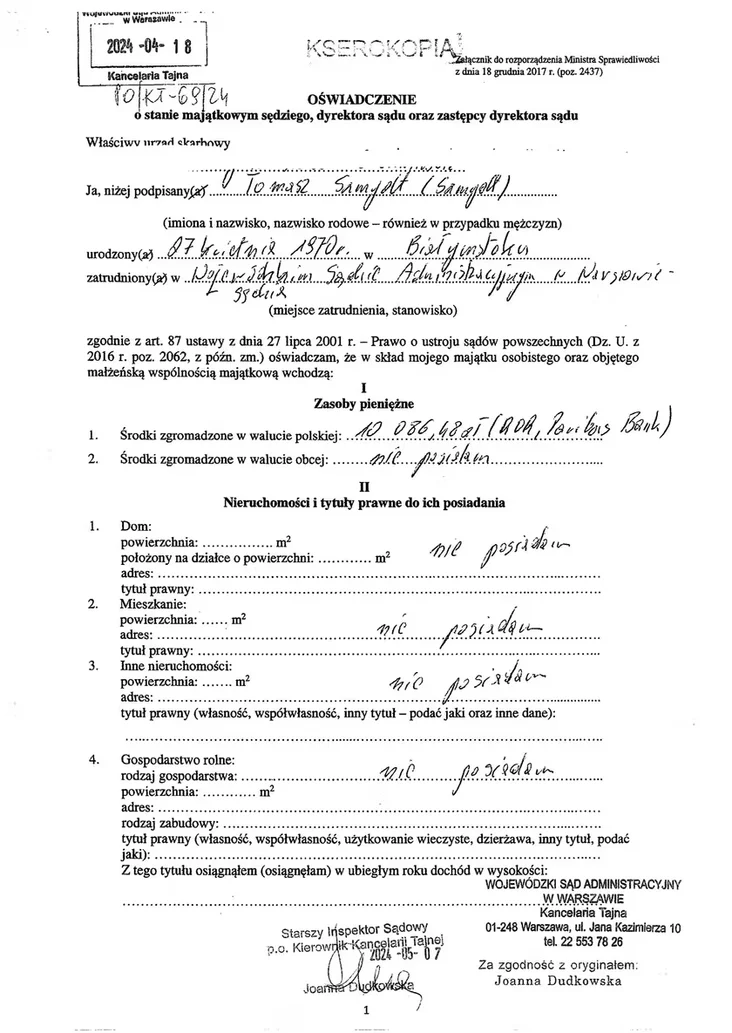 w Warszawie
2024 -04- 18
Kancelaria Tajna
KSEROKOPIA
Załącznik do rozporządzenia Ministra Sprawiedliwości
z dnia 18 grudnia 2017 r. (poz. 2437)
OŚWIADCZENIE
o stanie majątkowym sędziego, dyrektora sądu oraz zastępcy dyrektora sądu
Właściwy urząd skarbowy
Ja, niżej podpisany(a) Tomasz Szmydt (Szmydt)
(imiona i nazwisko, nazwisko rodowe – również w przypadku mężczyzn)
urodzony(a) 07 kwietnia 1970r. w Białymstoku
zatrudniony(a) w Wojewódzkim Sądzie Administracyjnym w Warszawie -
sędzia
(miejsce zatrudnienia, stanowisko)
zgodnie z art. 87 ustawy z dnia 27 lipca 2001 r. – Prawo o ustroju sądów powszechnych (Dz. U. z
2016 r. poz. 2062, z późn. zm.) oświadczam, że w skład mojego majątku osobistego oraz objętego
małżeńską wspólnością majątkową wchodzą:
I
Zasoby pieniężne
1. Środki zgromadzone w walucie polskiej: 10 086,48 zł (ROR, Paribas Bank)
2. Środki zgromadzone w walucie obcej: nie posiadam
II
Nieruchomości i tytuły prawne do ich posiadania
1. Dom:
powierzchnia: ................ m²
położony na działce o powierzchni: ............ m² nie posiadam
adres:
tytuł prawny:
2. Mieszkanie:
powierzchnia: ...... m²
adres: nie posiadam
tytuł prawny:
3. Inne nieruchomości:
powierzchnia: ....... m² nie posiadam
adres:
tytuł prawny (własność, współwłasność, inny tytuł – podać jaki oraz inne dane):
4. Gospodarstwo rolne:
rodzaj gospodarstwa: nie posiadam
powierzchnia: ............ m²
adres:
rodzaj zabudowy:
tytuł prawny (własność, współwłasność, użytkowanie wieczyste, dzierżawa, inny tytuł, podać
jaki):
Z tego tytułu osiągnąłem (osiągnęłam) w ubiegłym roku dochód w wysokości:
WOJEWÓDZKI SĄD ADMINISTRACYJNY
W WARSZAWIE
Kancelaria Tajna
01-248 Warszawa, ul. Jana Kazimierza 10
tel. 22 553 78 26
Starszy Inspektor Sądowy
p.o. Kierownik Kancelarii Tajnej
2024 -05- 07
Joanna Dudkowska
Za zgodność z oryginałem:
Joanna Dudkowska
1